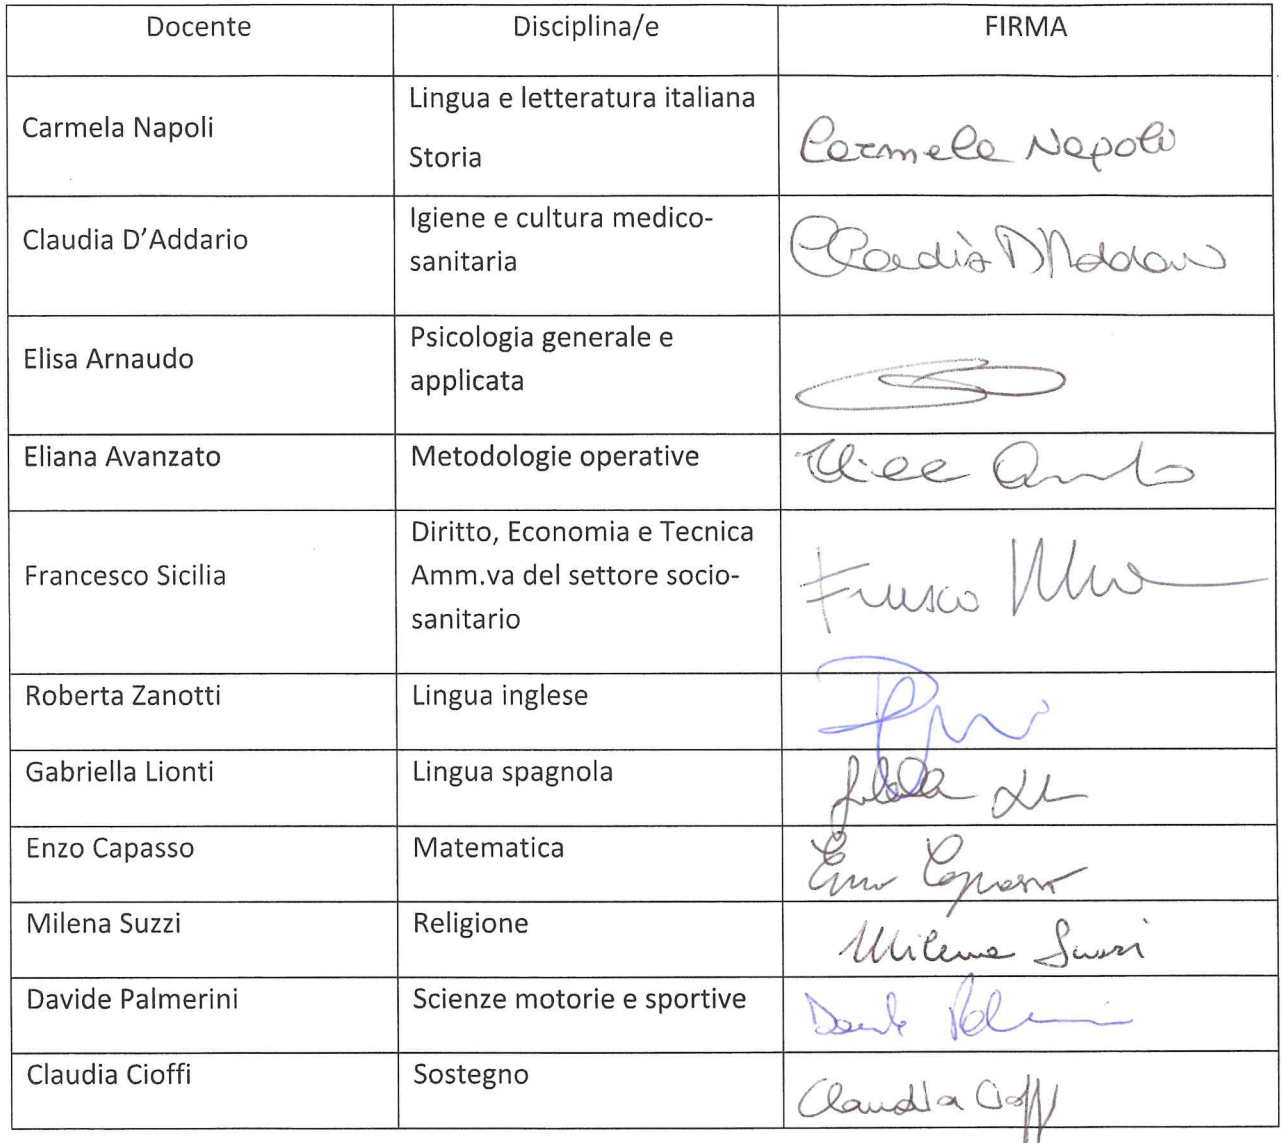 Docente Disciplina/e FIRMA
Carmela Napoli Lingua e letteratura italiana
Storia Carmela Napoli
Claudia D'Addario Igiene e cultura medico-
sanitaria Claudia D'Addario
Elisa Arnaudo Psicologia generale e
applicata
Eliana Avanzato Metodologie operative
Francesco Sicilia Diritto, Economia e Tecnica
Amm.va del settore socio-
sanitario
Roberta Zanotti Lingua inglese
Gabriella Lionti Lingua spagnola
Enzo Capasso Matematica Enzo Capasso
Milena Suzzi Religione Milena Suzzi
Davide Palmerini Scienze motorie e sportive
Claudia Cioffi Sostegno Claudia Cioffi